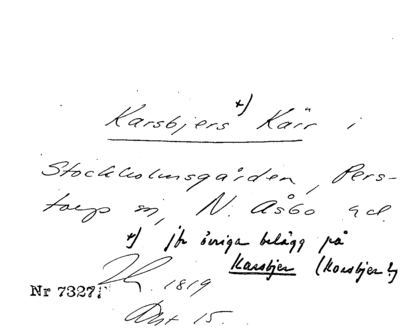 Karsbjers *) Kärr i
Stockholmsgården, Pers-
torp sn, N. Åsbo hd.
*) jfr övriga belägg på
Karsbjer (Korsbjer?)
1819
Nr 7327
Akt 15.